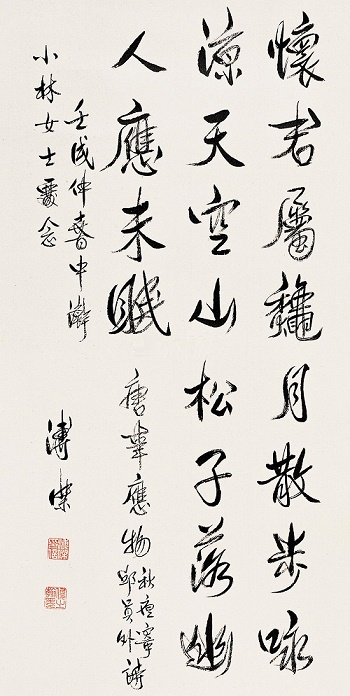 懷君屬龝月散步咏
涼天空山松子落幽
人應未眠
唐韋應物秋夜寄
邱員外詩
壬戌仲春中澣
小林女士念
溥傑